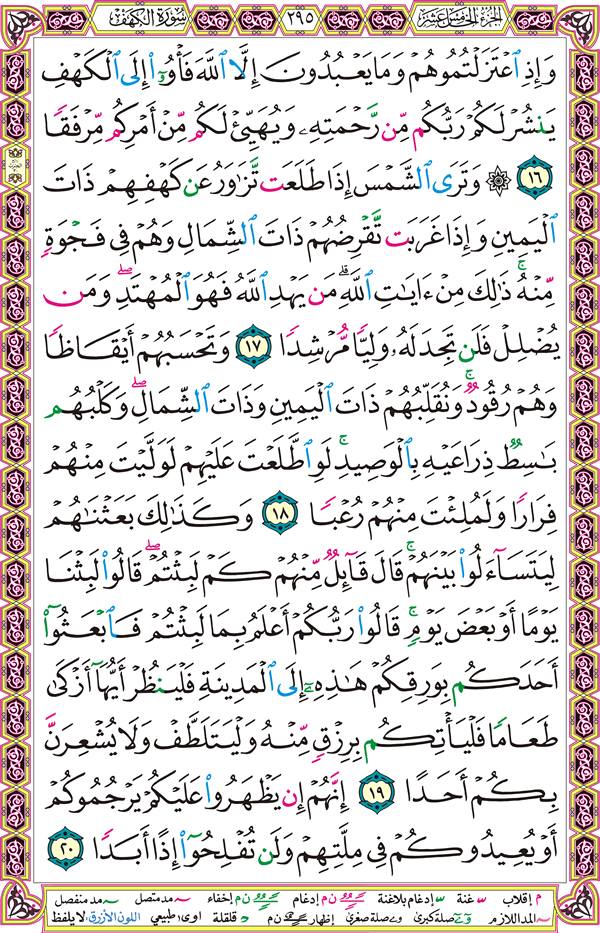 الجزء الخامس عشر
٢٩٥
سورة الكهف
وَإِذِ ٱعۡتَزَلۡتُمُوهُمۡ وَمَا يَعۡبُدُونَ إِلَّا ٱللَّهَ فَأۡوُۥٓاْ إِلَى ٱلۡكَهۡفِ
يَنشُرۡ لَكُمۡ رَبُّكُم مِّن رَّحۡمَتِهِۦ وَيُهَيِّئۡ لَكُم مِّنۡ أَمۡرِكُم مِّرۡفَقٗا
١٦ ۞ وَتَرَى ٱلشَّمۡسَ إِذَا طَلَعَت تَّزَٰوَرُ عَن كَهۡفِهِمۡ ذَاتَ
ٱلۡيَمِينِ وَإِذَا غَرَبَت تَّقۡرِضُهُمۡ ذَاتَ ٱلشِّمَالِ وَهُمۡ فِي فَجۡوَةٖ
مِّنۡهُۚ ذَٰلِكَ مِنۡ ءَايَٰتِ ٱللَّهِۗ مَن يَهۡدِ ٱللَّهُ فَهُوَ ٱلۡمُهۡتَدِۖ وَمَن
يُضۡلِلۡ فَلَن تَجِدَ لَهُۥ وَلِيّٗا مُّرۡشِدٗا ١٧ وَتَحۡسَبُهُمۡ أَيۡقَاظٗا
وَهُمۡ رُقُودٞۚ وَنُقَلِّبُهُمۡ ذَاتَ ٱلۡيَمِينِ وَذَاتَ ٱلشِّمَالِۖ وَكَلۡبُهُم
بَٰسِطٞ ذِرَاعَيۡهِ بِٱلۡوَصِيدِۚ لَوِ ٱطَّلَعۡتَ عَلَيۡهِمۡ لَوَلَّيۡتَ مِنۡهُمۡ
فِرَارٗا وَلَمُلِئۡتَ مِنۡهُمۡ رُعۡبٗا ١٨ وَكَذَٰلِكَ بَعَثۡنَٰهُمۡ
لِيَتَسَآءَلُواْ بَيۡنَهُمۡۚ قَالَ قَآئِلٞ مِّنۡهُمۡ كَمۡ لَبِثۡتُمۡۖ قَالُواْ لَبِثۡنَا
يَوۡمًا أَوۡ بَعۡضَ يَوۡمٖۚ قَالُواْ رَبُّكُمۡ أَعۡلَمُ بِمَا لَبِثۡتُمۡ فَٱبۡعَثُوٓاْ
أَحَدَكُم بِوَرِقِكُمۡ هَٰذِهِۦٓ إِلَى ٱلۡمَدِينَةِ فَلۡيَنظُرۡ أَيُّهَآ أَزۡكَىٰ
طَعَامٗا فَلۡيَأۡتِكُم بِرِزۡقٖ مِّنۡهُ وَلۡيَتَلَطَّفۡ وَلَا يُشۡعِرَنَّ
بِكُمۡ أَحَدًا ١٩ إِنَّهُمۡ إِن يَظۡهَرُواْ عَلَيۡكُمۡ يَرۡجُمُوكُمۡ
أَوۡ يُعِيدُوكُمۡ فِي مِلَّتِهِمۡ وَلَن تُفۡلِحُوٓاْ إِذًا أَبَدٗا ٢٠
م إقلاب غنة إدغام بلاغنة ن م إدغام إخفاء مد متصل مد منفصل
المد اللازم و ے صلة كبرى و ے صلة صغرى إظهار ن م قلقلة اوى طبيعي اللون الأزرق: لا يلفظ